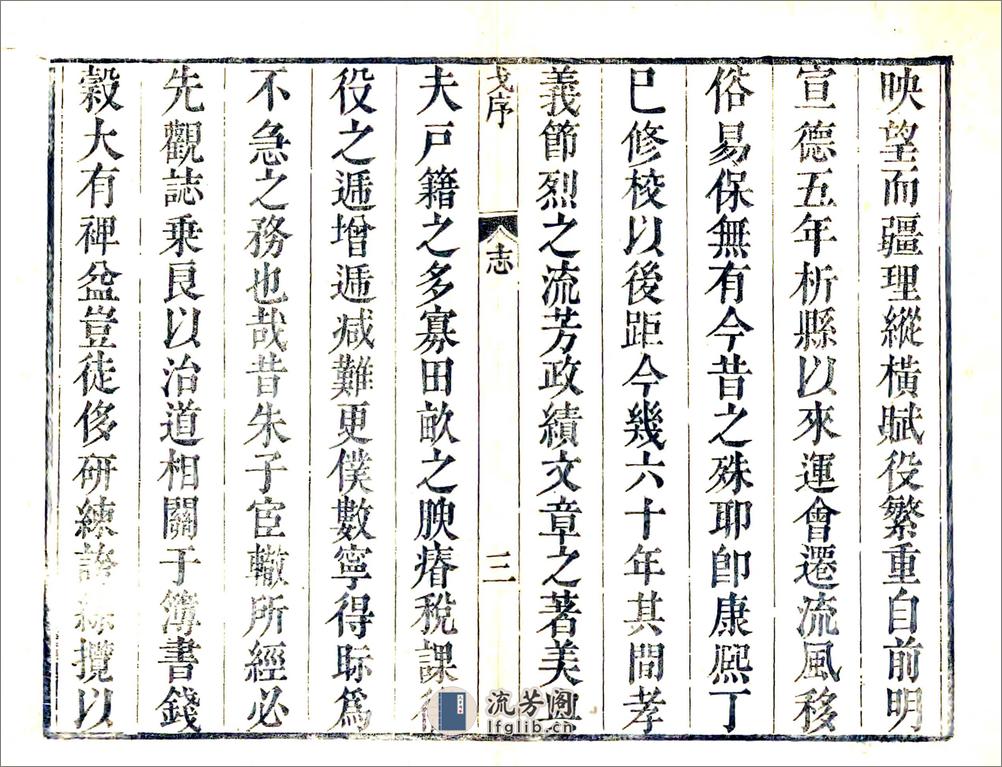 映望而疆理縱橫賦役繁重自前明
宣德五年析縣以來運會遷流風移
俗易保無有今昔之殊耶卽康熙丁
巳修校以後距今幾六十年其間孝
義節烈之流芳政績文章之著美與
戈序
志
三
夫戸籍之多寡田畝之腴瘠稅課
役之遞增遞減難更僕數寧得眎爲
不急之務也哉昔朱子宦轍所經必
先觀誌乗良以治道相關于簿書錢
穀大有裨益豈徒侈研練誇綜攬以
流芳阁
lfglib.cn